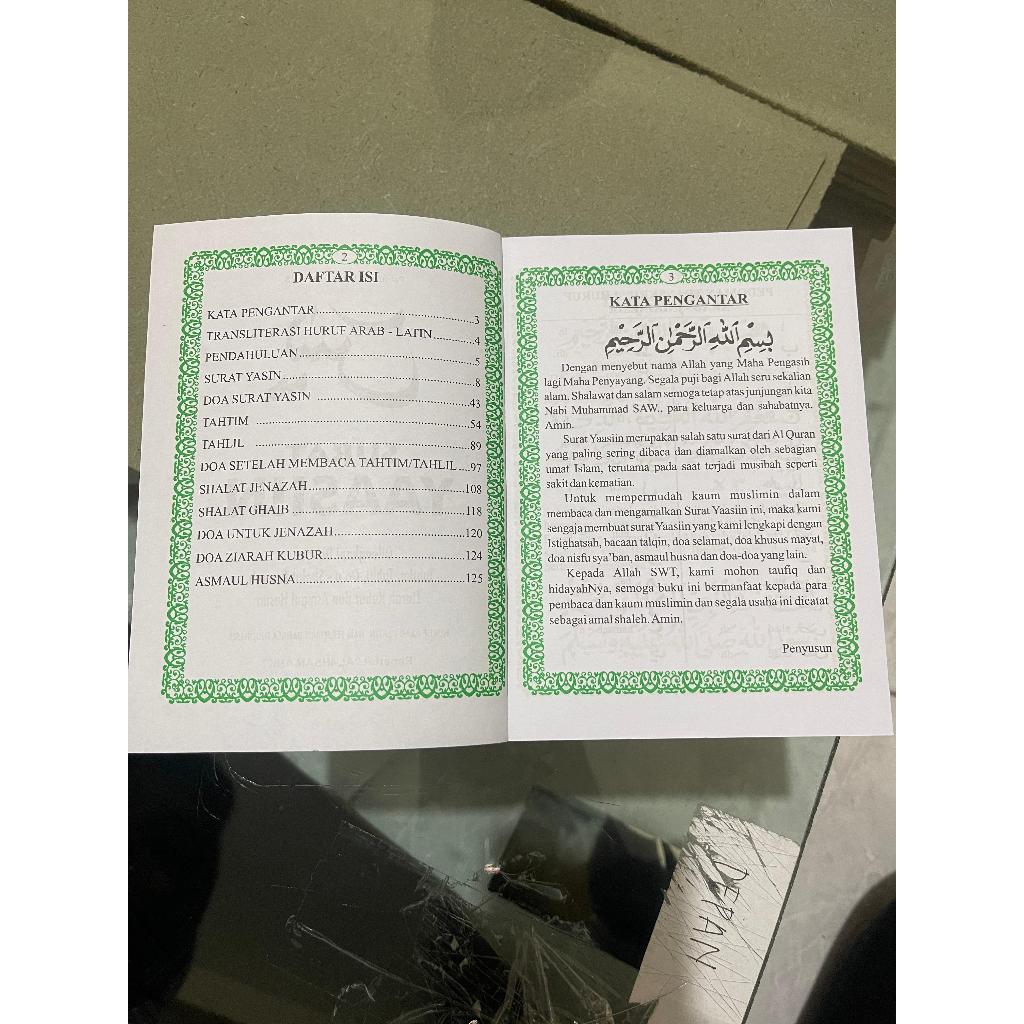 2
DAFTAR ISI
KATA PENGANTAR....................................................3
TRANSLITERASI HURUF ARAB - LATIN............4
PENDAHULUAN........................................................5
SURAT YASIN............................................................8
DOA SURAT YASIN ..................................................43
TAHTIM ..................................................................54
TAHLIL ..................................................................89
DOA SETELAH MEMBACA TAHTIM/TAHLIL ....97
SHALAT JENAZAH................................................108
SHALAT GHAIB ....................................................118
DOA UNTUK JENAZAH..........................................120
DOA ZIARAH KUBUR............................................124
ASMAUL HUSNA....................................................125
3
KATA PENGANTAR
بِسْمِ اللهِ الرَّحْمٰنِ الرَّحِيْمِ
Dengan menyebut nama Allah yang Maha Pengasih
lagi Maha Penyayang. Segala puji bagi Allah seru sekalian
alam. Shalawat dan salam semoga tetap atas junjungan kita
Nabi Muhammad SAW., para keluarga dan sahabatnya.
Amin.
Surat Yaasiin merupakan salah satu surat dari Al Quran
yang paling sering dibaca dan diamalkan oleh sebagian
umat Islam, terutama pada saat terjadi musibah seperti
sakit dan kematian.
Untuk mempermudah kaum muslimin dalam
membaca dan mengamalkan Surat Yaasiin ini, maka kami
sengaja membuat surat Yaasiin yang kami lengkapi dengan
Istighatsah, bacaan talqin, doa selamat, doa khusus mayat,
doa nisfu sya'ban, asmaul husna dan doa-doa yang lain.
Kepada Allah SWT, kami mohon taufiq dan
hidayahNya, semoga buku ini bermanfaat kepada para
pembaca dan kaum muslimin dan segala usaha ini dicatat
sebagai amal shaleh. Amin.
Penyusun
DEPAN